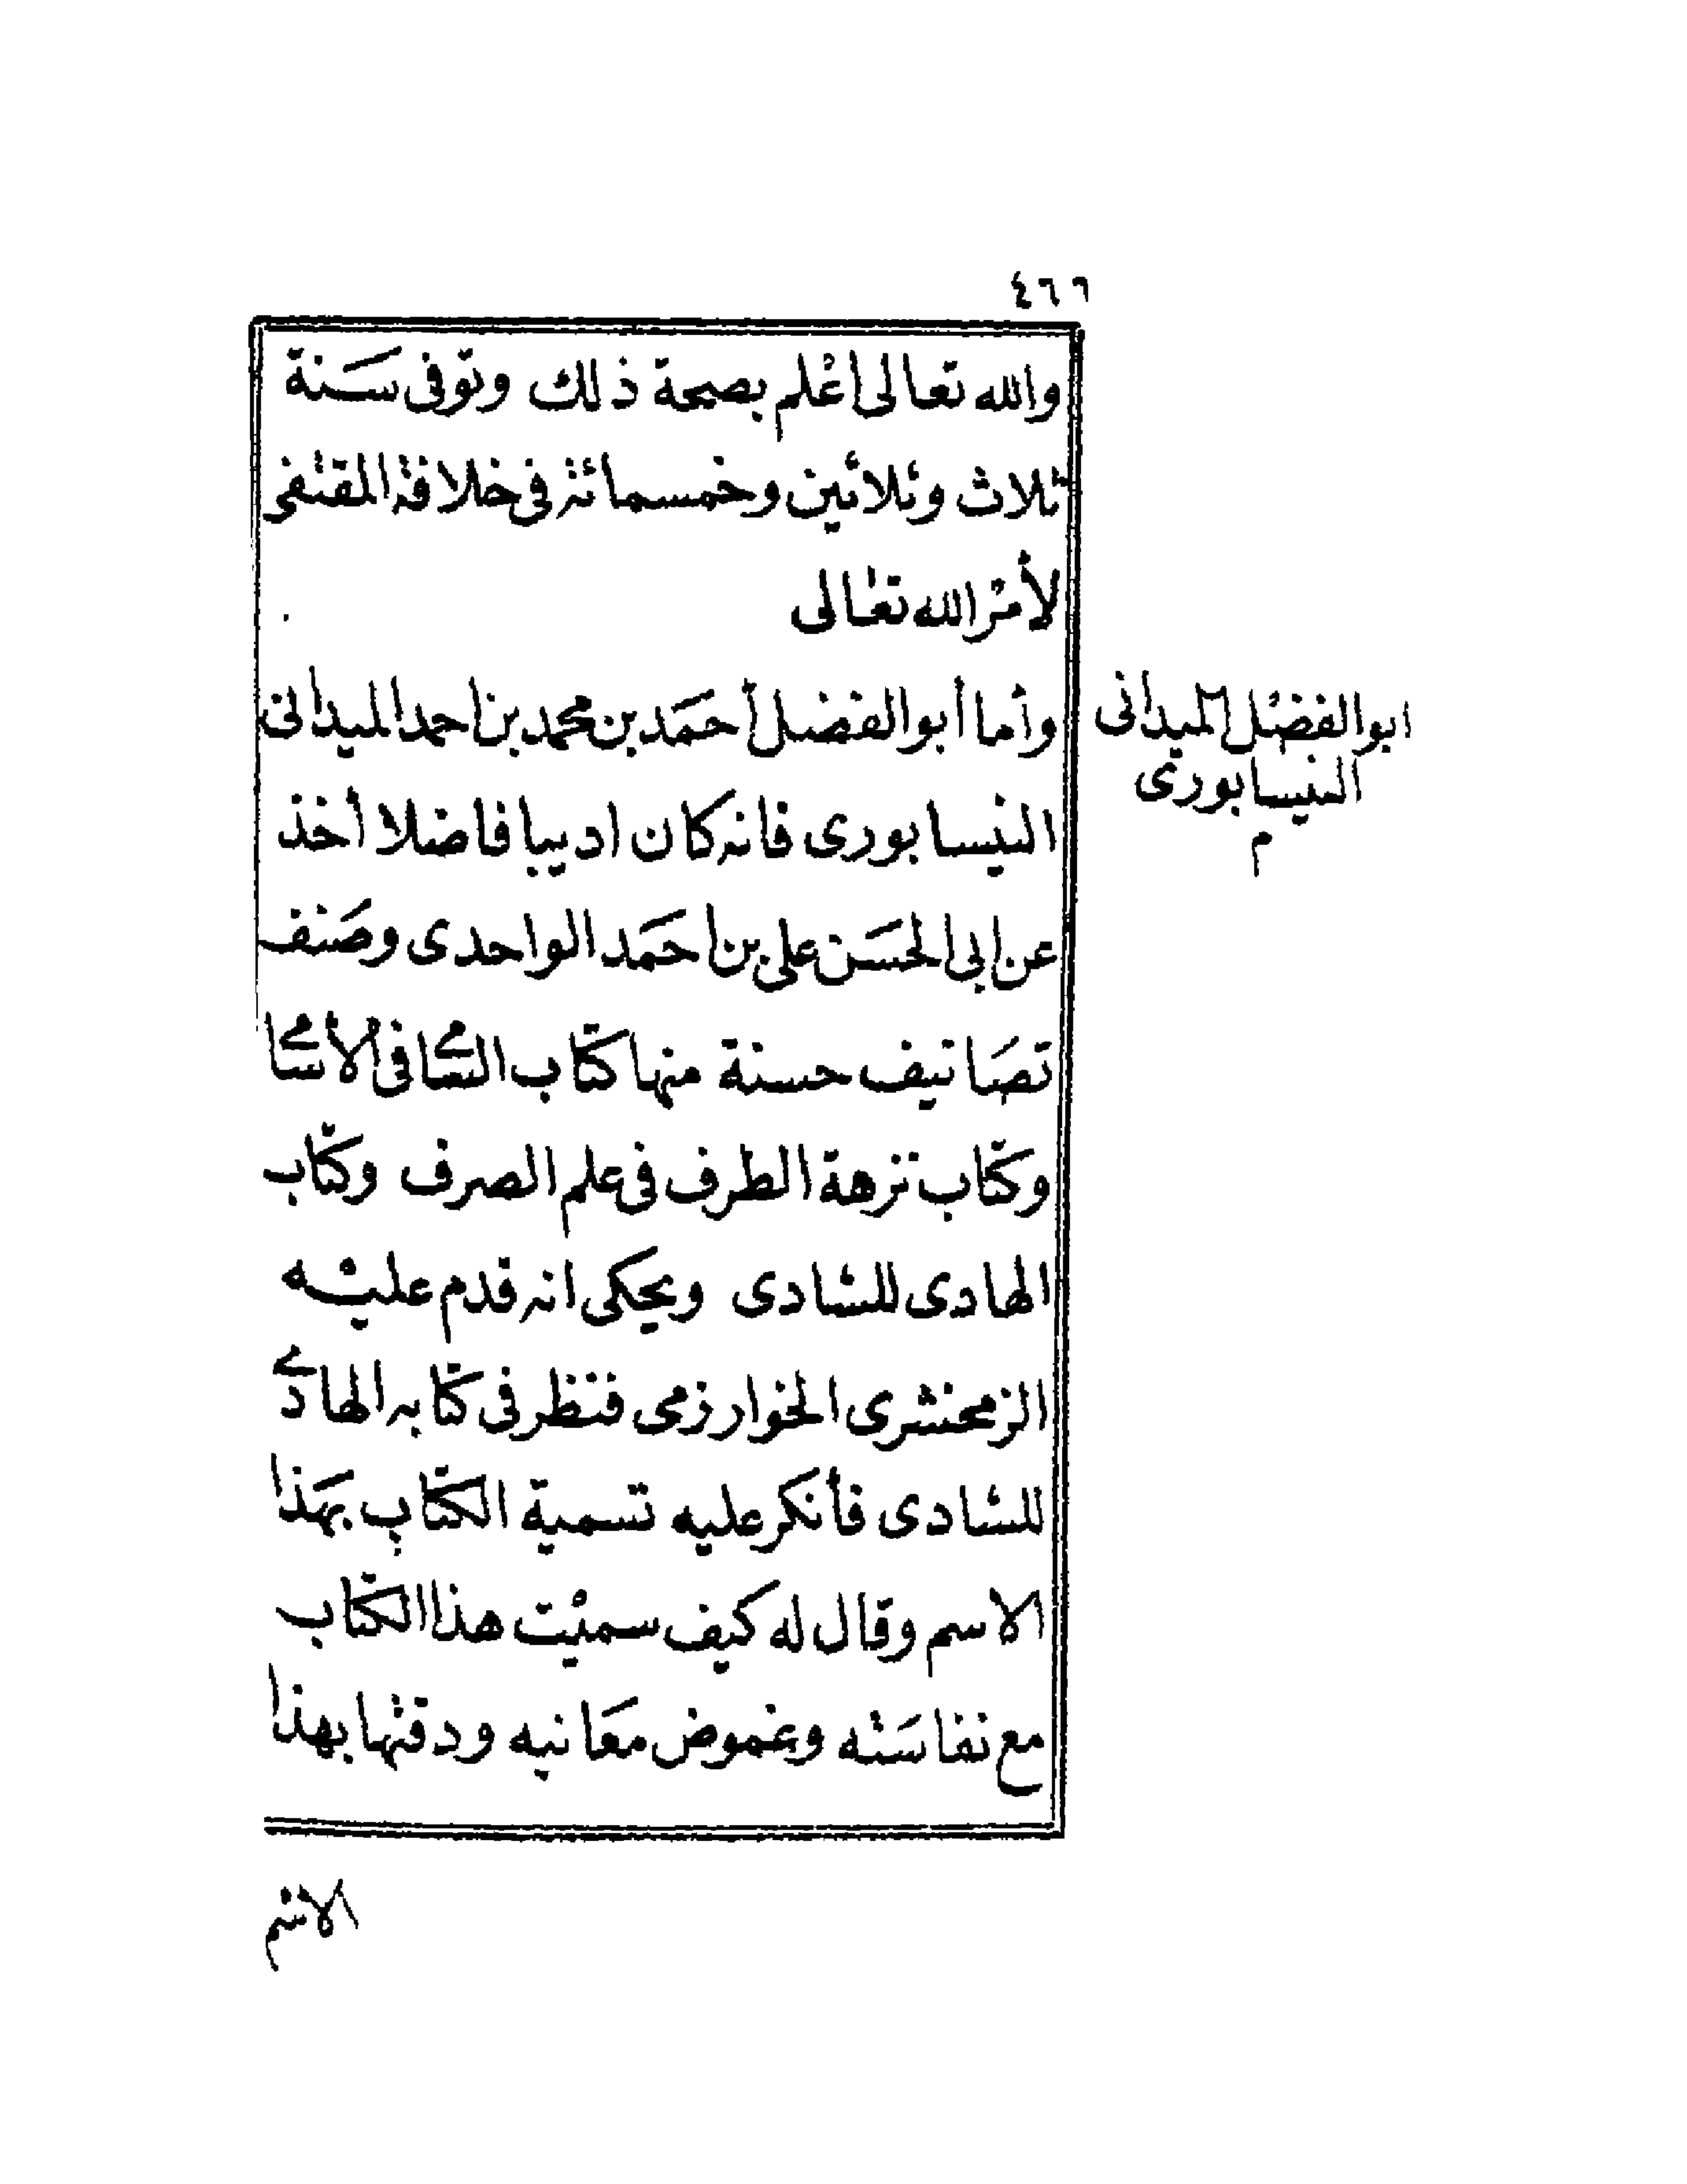 ٤٦٦
والله تعالى اعْلم بصحة ذلك وتوفى سَنة
ثلاث وثلاثين وخمسمائة فى خلافة المقتفى
لأمرْ الله تعالى
ابو الفضْل الميدانى
النيسابورى
م
وأما أبو الفضل أحمَد بن محمد بن احمد الميدانى
النيسابورى فانه كان اديبا فاضلا أخذ
عن ابى الحسَن على بن احمَد الواحدى وصَنف
تصَانيف حسنة منها كتاب السامى فى الأسامى
وكتاب نزهة الطرف فى علم الصرف وكتاب
الهادى للشادى ويحكى انه قدم عليْه
الزمخشرى الخوارزمى فنظر فى كتابه الهادى
للشادى فأنكر عليه تسمية الكتاب بهَذا
الاسم وقال له كيف سميْت هذا الكتاب
مع نفاسَته وغموض معَانيه ودقتها بهذا
الاسْم